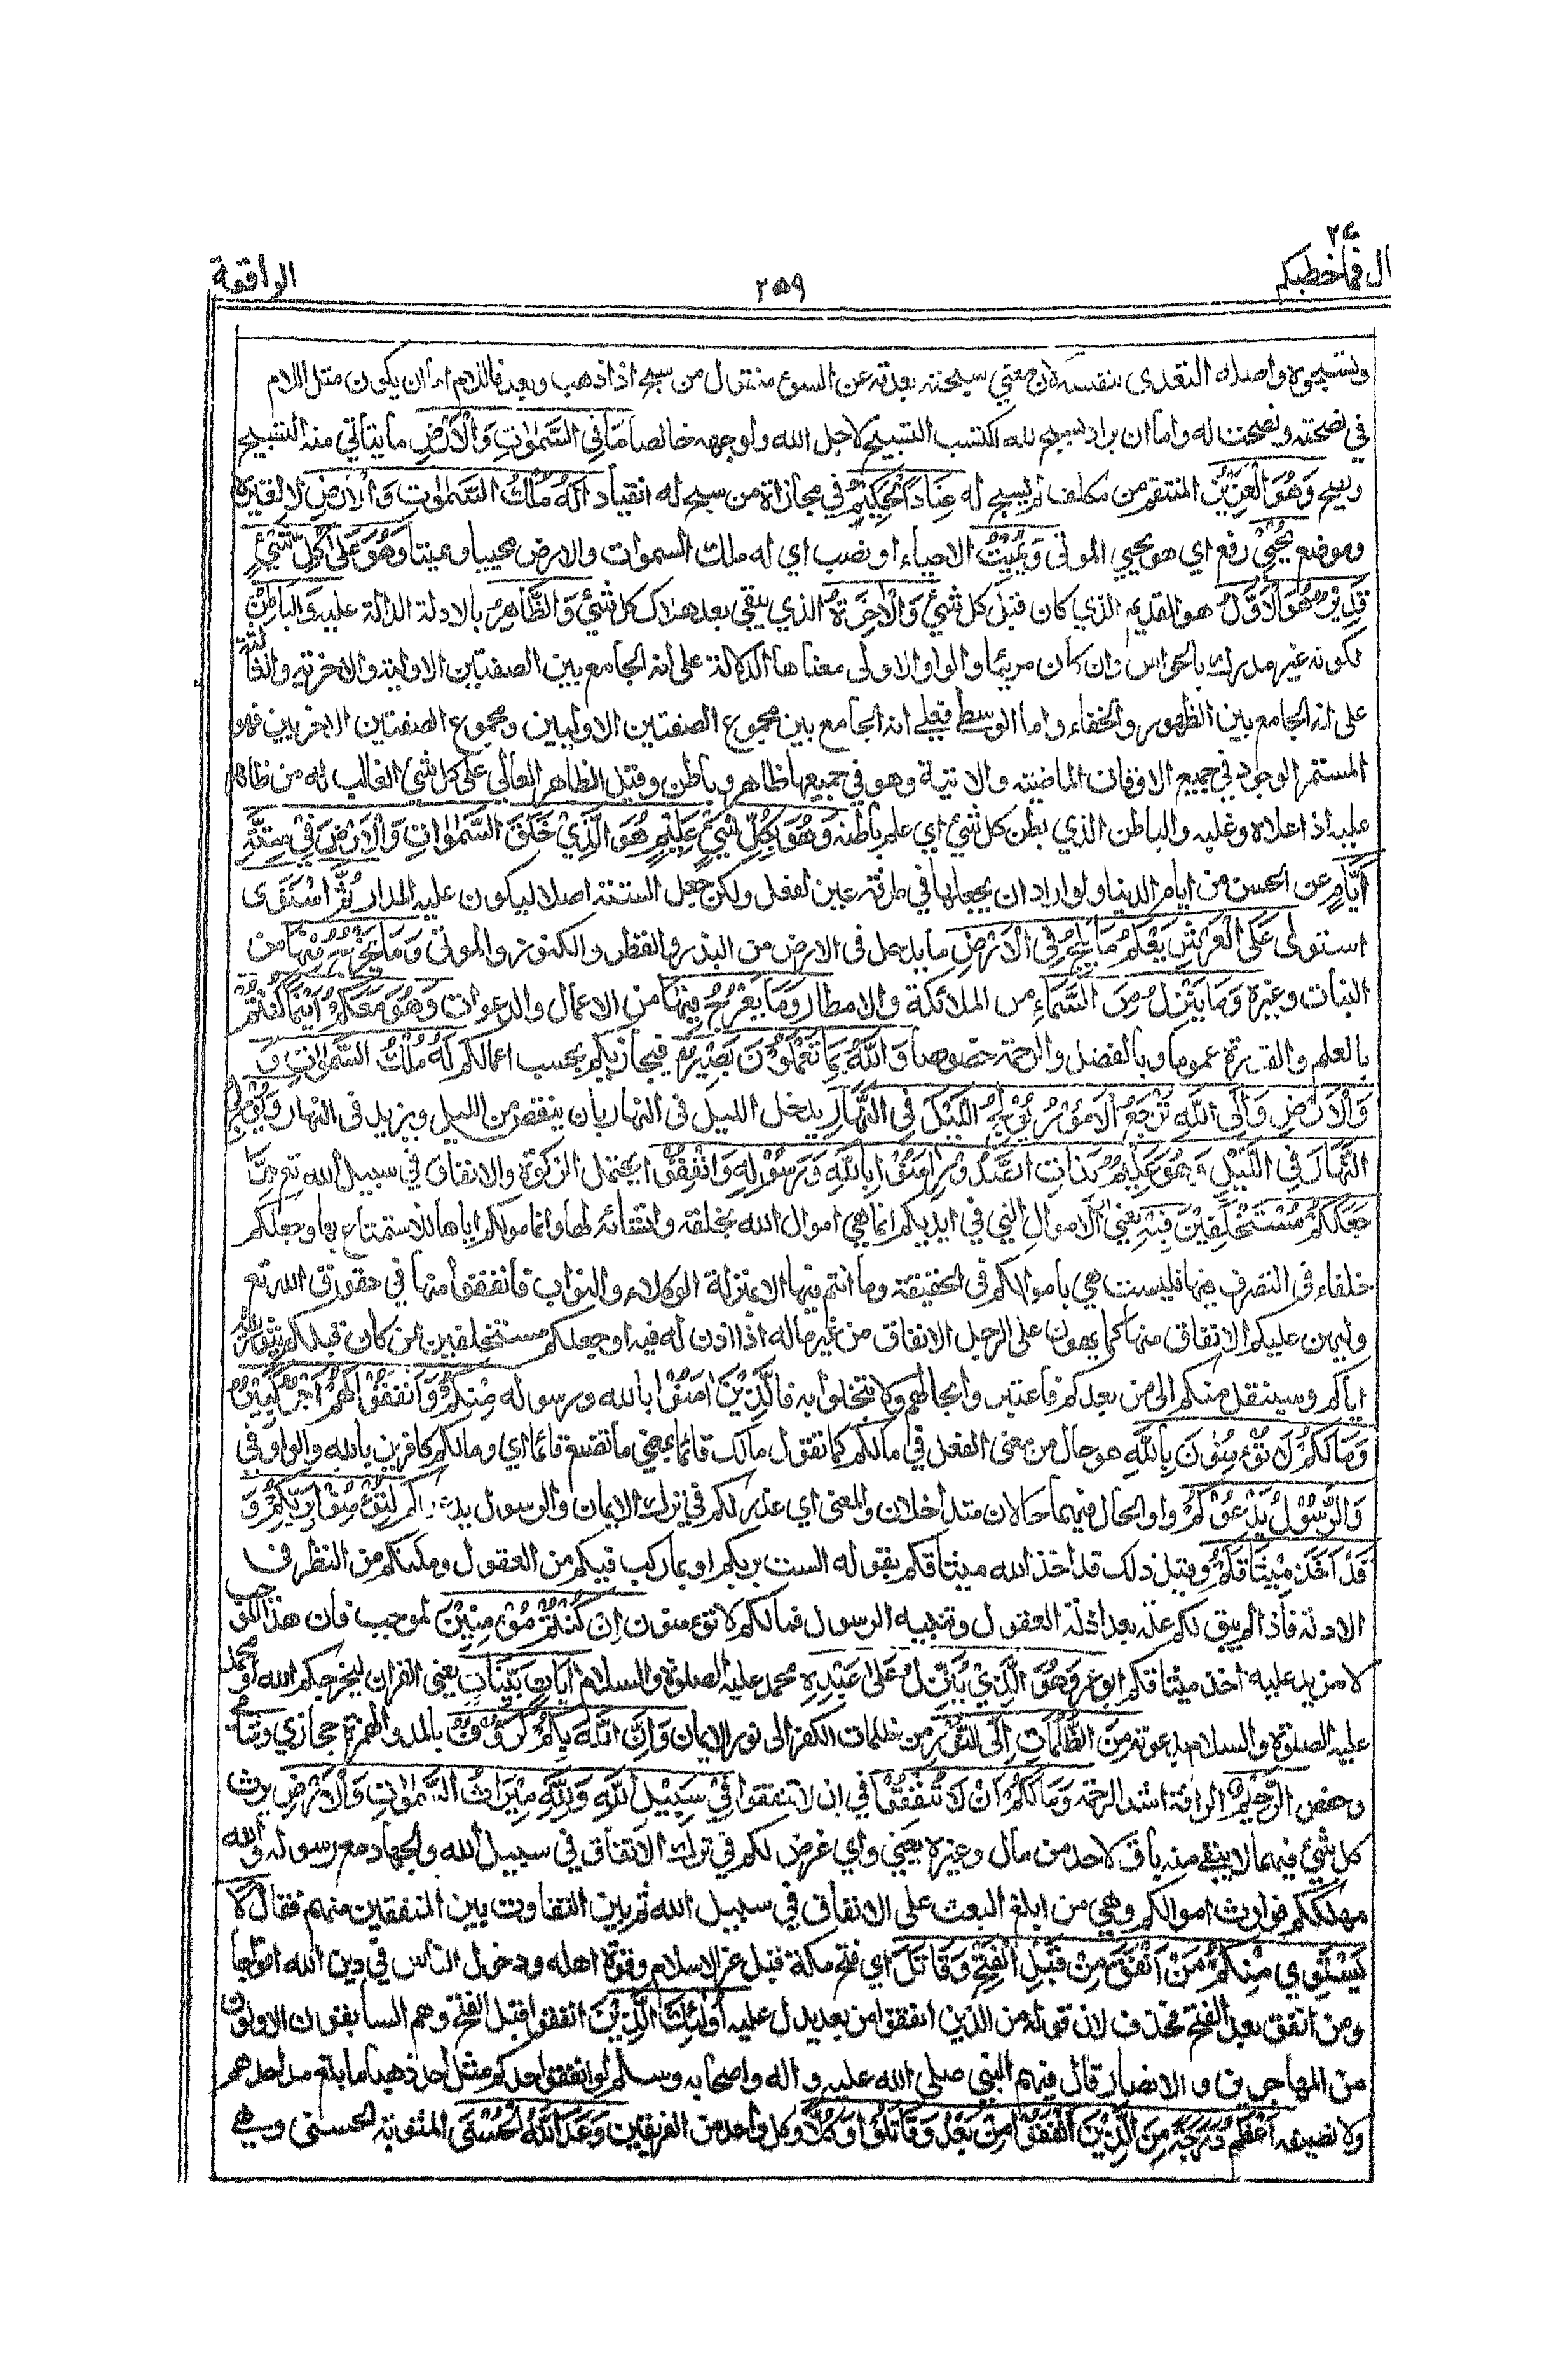 ٢٧
ال فما خطبكم
٢٥٩
الواقعة
وتسبحوه واصله التعدي بنفسه لان معنى سبحته بعدته عن السوء منقول من سبح اذا ذهب وبعد فاللام اما ان يكون مثل اللام
في نصحته ونصحت له واما ان يراد بسبح لله اكتسب التسبيح لاجل الله ولوجهه خالصا مَا فِي السَّمٰوٰتِ وَالْاَرْضِ ما يتاتي منه التسبيح
ويسبح وَهُوَ الْعَزِيْزُ المنتقم من مكلف لم يسبح له عنادا الْحَكِيْمُ في مجازاة من سبح له انقيادا لَهٗ مُلْكُ السَّمٰوٰتِ وَالْاَرْضِ لا لغيره
وموضع يُحْيٖ رفع اي هو يحيي الموتى وَيُمِيْتُ الاحياء او نصب اي له ملك السموات والارض محييا ومميتا وَهُوَ عَلٰى كُلِّ شَيْءٍ
قَدِيْرٌ هُوَ الْاَوَّلُ هو القديم الذي كان قبل كل شيء وَالْاٰخِرُ الذي يبقى بعد هلاك كل شيء وَالظَّاهِرُ بالادلة الدالة عليه وَالْبَاطِنُ
لكونه غير مدرك بالحواس وان كان مرئيا والواو الاولى معناها الدلالة على انه الجامع بين الصفتين الاولية والاخرية والثالثة
على انه الجامع بين الظهور والخفاء واما الوسطى فعلى انه الجامع بين مجموع الصفتين الاوليين ومجموع الصفتين الاخريين فهو
المستمر الوجود في جميع الاوقات الماضية والاتية وهو في جميعها ظاهر وباطن وقيل الظاهر العالي على كل شيء الغالب له من ظاهر
عليه اذا علاه وغلبه والباطن الذي بطن كل شيء اي علم باطنه وَهُوَ بِكُلِّ شَيْءٍ عَلِيْمٌ هُوَ الَّذِيْ خَلَقَ السَّمٰوٰاتِ وَالْاَرْضَ فِيْ سِتَّةِ
اَيَّامٍ عن الحسن من ايام الدنيا ولو اراد ان يجعلها في طرفة عين لفعل ولكن جعل الستة اصلا ليكون عليه المدار ثُمَّ اسْتَوٰى
استولى عَلَى الْعَرْشِ يَعْلَمُ مَا يَلِجُ فِي الْاَرْضِ ما يدخل في الارض من البذر والقطر والكنوز والموتى وَمَا يَخْرُجُ مِنْهَا من
النبات وغيره وَمَا يَنْزِلُ مِنَ السَّمَاءِ من الملائكة والامطار وَمَا يَعْرُجُ فِيْهَا من الاعمال والدعوات وَهُوَ مَعَكُمْ اَيْنَمَا كُنْتُمْ
بالعلم والقدرة عموما وبالفضل والرحمة خصوصا وَاللّٰهُ بِمَا تَعْمَلُوْنَ بَصِيْرٌ فيجازيكم بحسب اعمالكم لَهٗ مُلْكُ السَّمٰوٰاتِ وَ
وَالْاَرْضِ وَاِلَى اللّٰهِ تُرْجَعُ الْاُمُوْرُ يُوْلِجُ اللَّيْلَ فِي النَّهَارِ يدخل الليل في النهار بان ينقص من الليل ويزيد في النهار وَيُوْلِجُ
النَّهَارَ فِي اللَّيْلِ وَهُوَ عَلِيْمٌ بِذَاتِ الصُّدُوْرِ اٰمِنُوْا بِاللّٰهِ وَرَسُوْلِهٖ وَاَنْفِقُوْا يحتمل الزكوة والانفاق في سبيل الله تع مِمَّا
جَعَلَكُمْ مُسْتَخْلَفِيْنَ فِيْهِ يعني ان الاموال التي في ايديكم انما هي اموال الله بخلقه وانشائه لها وانما مولكم اياها للاستمتاع بها وجعلكم
خلفاء في التصرف فيها فليست هي باموالكم في الحقيقة وما انتم فيها الا بمنزلة الوكلاء والنواب فانفقوا منها في حقوق الله تع
وليهن عليكم الانفاق منها كما يهون على الرجل الانفاق من غير ماله اذا اذن له فيه او جعلكم مستخلفين ممن كان قبلكم بتوريثه
اياكم وسينقل منكم الى من بعدكم فاعتبروا بحالهم ولا تبخلوا به فَالَّذِيْنَ اٰمَنُوْا بالله ورسوله مِنْكُمْ وَاَنْفَقُوْا لَهُمْ اَجْرٌ كَبِيْرٌ
وَمَا لَكُمْ لَا تُؤْمِنُوْنَ بِاللّٰهِ هو حال من معنى الفعل في مالكم كما تقول مالك قائما بمعنى ما تصنع قائما اي ومالكم كافرين بالله والواو في
وَالرَّسُوْلُ يَدْعُوْكُمْ واو الحال فهما حالان متداخلان والمعنى اي عذر لكم في ترك الايمان والرسول يدعوكم لِتُؤْمِنُوْا بِرَبِّكُمْ وَ
قَدْ اَخَذَ مِيْثَاقَكُمْ وقبل ذلك قد اخذ الله ميثاقكم بقوله الست بربكم او بما ركب فيكم من العقول ومكنكم من النظر في
الادلة فاذا لم يبق لكم علة بعد ادلة العقول وتنبيه الرسول فمالكم لا تؤمنون اِنْ كُنْتُمْ مُؤْمِنِيْنَ لموجب فان هذا الموجب
لا مزيد عليه اخذ ميثاقكم ابو عمرو هُوَ الَّذِيْ يُنَزِّلُ عَلٰى عَبْدِهٖ محمد عليه الصلوة والسلام اٰيَاتٍ بَيِّنَاتٍ يعني القران ليخرجكم الله او محمد
عليه الصلوة والسلام بدعوته مِنَ الظُّلُمَاتِ اِلَى النُّوْرِ من ظلمات الكفر الى نور الايمان وَاِنَّ اللّٰهَ بِكُمْ لَرَءُوْفٌ بالمد والهمزة حجازي وشامي
وحفص الرَّحِيْمٌ الرافة اشد الرحمة وَمَا لَكُمْ اَنْ لَا تُنْفِقُوْا في ان لا تنفقوا فِيْ سَبِيْلِ اللّٰهِ وَلِلّٰهِ مِيْرَاثُ السَّمٰوٰتِ وَالْاَرْضِ يرث
كل شيء فيهما لا يبقى منه باق لاحد من مال وغيره يعني واي غرض لكم في ترك الانفاق في سبيل الله والجهاد مع رسوله والله
مهلككم فوارث اموالكم وهي من ابلغ البعث على الانفاق في سبيل الله ثم بين التفاوت بين المنفقين منهم فقال لَا
يَسْتَوِيْ مِنْكُمْ مَنْ اَنْفَقَ مِنْ قَبْلِ الْفَتْحِ وَقَاتَلَ اي فتح مكة قبل عز الاسلام وقوة اهله ودخول الناس في دين الله افواجا
ومن انفق بعد الفتح فحذف لان قوله من الذين انفقوا من بعد يدل عليه اُولٰئِكَ الَّذِيْنَ انفقوا قبل الفتح وهم السابقون الاولون
من المهاجرين والانصار قال فيهم النبي صلى الله عليه واله واصحابه وسلم لو انفق احدكم مثل احد ذهبا ما بلغ مد احدهم
ولا نصيفه اَعْظَمُ دَرَجَةً مِنَ الَّذِيْنَ اَنْفَقُوْا مِنْ بَعْدُ وَقَاتَلُوْا وَكُلًّا وكل واحد من الفريقين وَعَدَ اللّٰهُ الْحُسْنٰى المثوبة الحسنى وهي